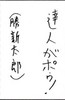 達人がポウ!
(勝新太郎)